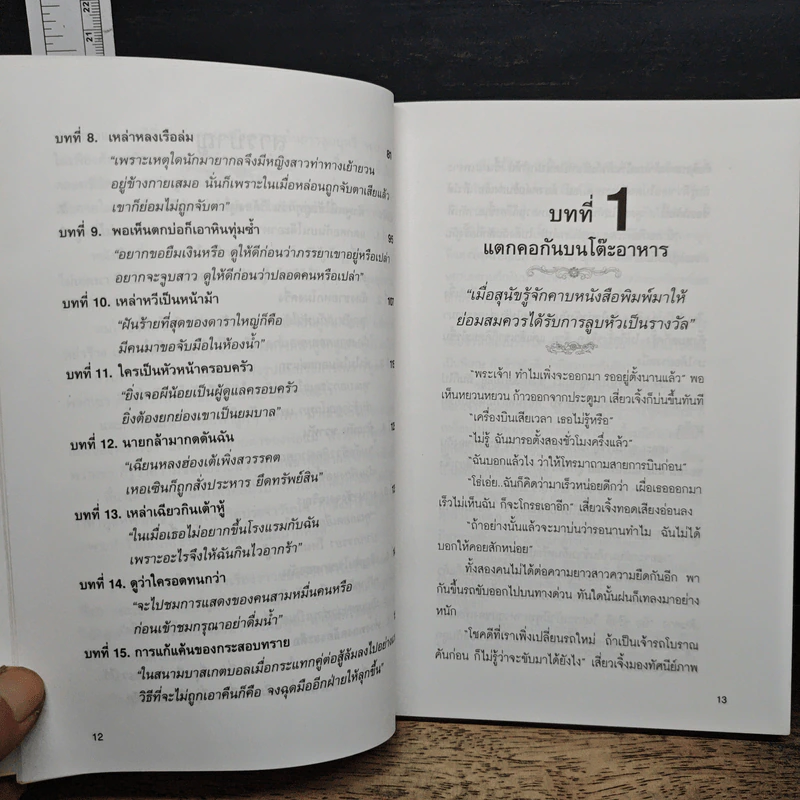 21
22
บทที่ 8. เหล่าหลงเรือล่ม 81
“เพราะเหตุใดนักมายากลจึงมีหญิงสาวท่าทางเย้ายวน
อยู่ข้างกายเสมอ นั่นก็เพราะในเมื่อหล่อนถูกจับตาเสียแล้ว
เขาก็ย่อมไม่ถูกจับตา”
บทที่ 9. พอเห็นตกบ่อก็เอาหินทุ่มซ้ำ 95
“อยากขอยืมเงินหรือ ดูให้ดีก่อนว่าภรรยาเขาอยู่หรือเปล่า
อยากจะจูบสาว ดูให้ดีก่อนว่าปลอดคนหรือเปล่า”
บทที่ 10. เหล่าหวีเป็นหน้าม้า 107
“ฝันร้ายที่สุดของดาราใหญ่ก็คือ
มีคนมาขอจับมือในห้องน้ำ”
บทที่ 11. ใครเป็นหัวหน้าครอบครัว
“ยิ่งเจอผีน้อยเป็นผู้ดูแลครอบครัว
ยิ่งต้องยกย่องเขาเป็นยมบาล”
บทที่ 12. นายกล้ามากดดันฉัน
“เฉียนหลงฮ่องเต้เพิ่งสวรรคต
เหอเซินก็ถูกสั่งประหาร ยึดทรัพย์สิน”
บทที่ 13. เหล่าเฉียวกินเต้าหู้
“ในเมื่อเธอไม่อยากขึ้นโรงแรมกับฉัน
เพราะอะไรจึงให้ฉันกินไวอากร้า”
บทที่ 14. ดูว่าใครอดทนกว่า
“จะไปชมการแสดงของคนสามหมื่นคนหรือ
ก่อนเข้าชมกรุณาอย่าดื่มน้ำ”
บทที่ 15. การแก้แค้นของกระสอบทราย
“ในสนามบาสเกตบอลเมื่อกระแทกคู่ต่อสู้ล้มลงไปอย่างแรง
วิธีที่จะไม่ถูกเอาคืนก็คือ จงฉุดมืออีกฝ่ายให้ลุกขึ้น”
12
บทที่ 1
แตกคอกันบนโต๊ะอาหาร
“เมื่อสุนัขรู้จักคาบหนังสือพิมพ์มาให้
ย่อมสมควรได้รับการลูบหัวเป็นรางวัล”
“พระเจ้า! ทำไมเพิ่งจะออกมา รออยู่ตั้งนานแล้ว” พอ
เห็นหยวนหยวน ก้าวออกจากประตูมา เสี่ยวเจิ้งก็บ่นขึ้นทันที
“เครื่องบินเสียเวลา เธอไม่รู้หรือ”
“ไม่รู้ ฉันมารอตั้งสองชั่วโมงครึ่งแล้ว”
“ฉันบอกแล้วไง ว่าให้โทรมาถามสายการบินก่อน”
“โธ่เอ่ย..ฉันก็คิดว่ามาเร็วหน่อยดีกว่า เผื่อเธอออกมา
เร็วไม่เห็นฉัน ก็จะโกรธเอาอีก” เสี่ยวเจิ้งทอดเสียงอ่อนลง
“ถ้าอย่างนั้นแล้วจะมาบ่นว่ารอนานทำไม ฉันไม่ได้
บอกให้คอยสักหน่อย”
ทั้งสองคนไม่ได้ต่อความยาวสาวความยืดกันอีก พา
กันขึ้นรถขับออกไปบนทางด่วน ทันใดนั้นฝนก็เทลงมาอย่าง
หนัก
“โชคดีที่เราเพิ่งเปลี่ยนรถใหม่ ถ้าเป็นเจ้ารถโบราณ
คันก่อน ก็ไม่รู้ว่าจะขับมาได้ยังไง” เสี่ยวเจิ้งมองทัศนียภาพ
13